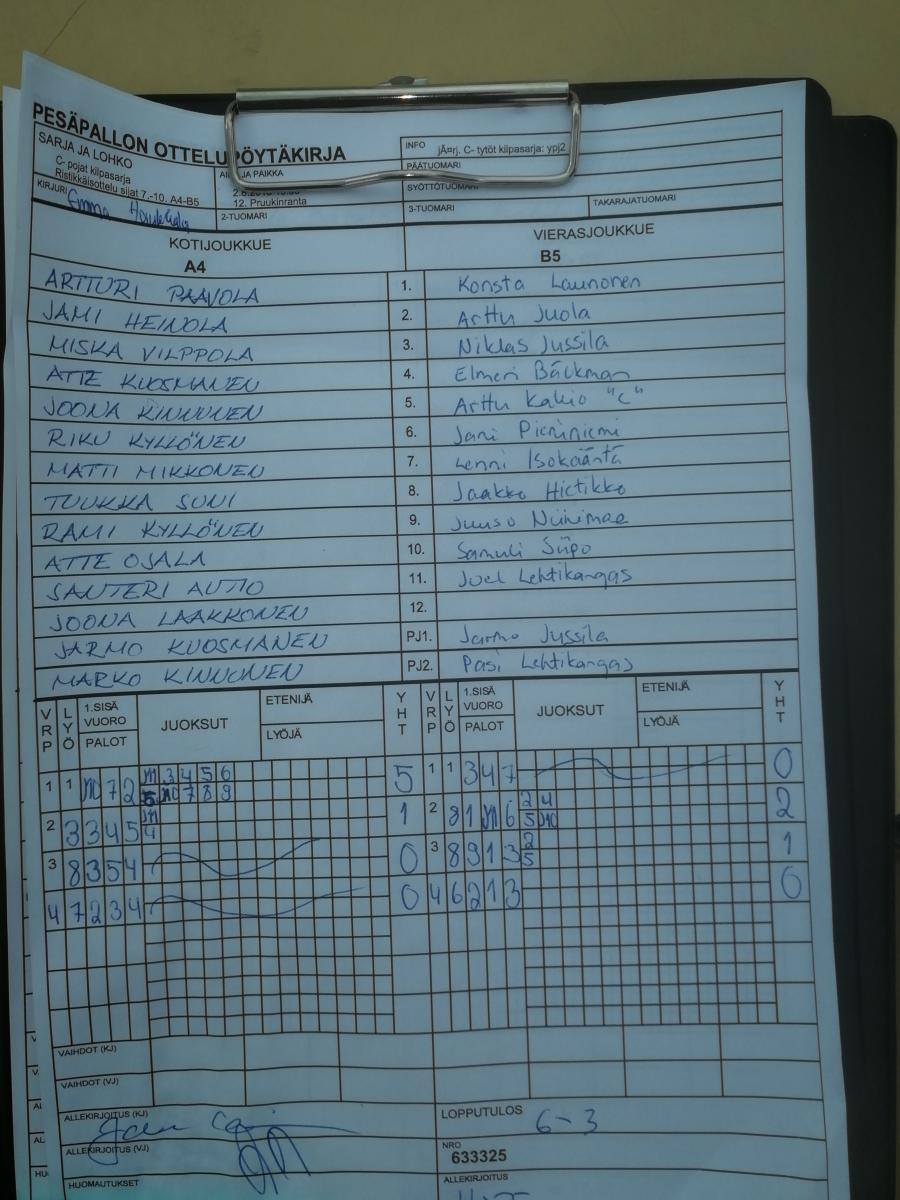 PESÄPALLON OTTELUPÖYTÄKIRJA
SARJA JA LOHKO
C- pojat kilpasarja
Ristikkäisottelu sijat 7.-10. A4-B5
JA PAIKKA
12. Pruukinranta
INFO jÄ¤rj. C- tytöt kilpasarja: ypj2
PÄÄTUOMARI
SYÖTTÖTUOMARI
KIRJURI Emma
2-TUOMARI
3-TUOMARI
TAKARAJATUOMARI
KOTIJOUKKUE
A4
VIERASJOUKKUE
B5
ARTTURI PAAVOLA 1. Konsta Launonen
JAMI HEINOLA 2. Arttu Juola
MISKA VILPPOLA 3. Niklas Jussila
ATTE KUOSMANEN 4. Elmeri Bäckman
JOONA KINNUNEN 5. Arttu Kakio "C"
RIKU KYLLÖNEN 6. Jani Pieniniemi
MATTI MIKKONEN 7. Lenni Isokääntä
TUUKKA SUNI 8. Jaakko Hietikko
RAMI KYLLÖNEN 9. Juuso Niinimaa
ATTE OJALA 10. Samuli Siipo
SANTERI AUTIO 11. Juel Lehtikangas
JOONA LAAKKONEN 12.
JARMO KUOSMANEN PJ1. Jarmo Jussila
MARKO KINNUNEN PJ2. Pasi Lehtikangas
VRP LYÖ 1.SISÄ VUORO PALOT JUOKSUT ETENIJÄ LYÖJÄ YHT VRP LYÖ 1.SISÄ VUORO PALOT JUOKSUT ETENIJÄ LYÖJÄ YHT
1 1 7 2 3 4 5 6 5 1 1 3 4 7 0
7 8 9
2 3 3 4 5 4 1 2 8 1 6 2 4 2
5 10
3 8 3 5 4 0 3 8 9 1 3 2 1
5
4 7 2 3 4 0 4 6 2 1 3 0
VAIHDOT (KJ)
VAIHDOT (VJ)
ALLEKIRJOITUS (KJ)
LOPPUTULOS
6-3
ALLEKIRJOITUS (VJ)
NRO
633325
HUOMAUTUKSET
ALLEKIRJOITUS